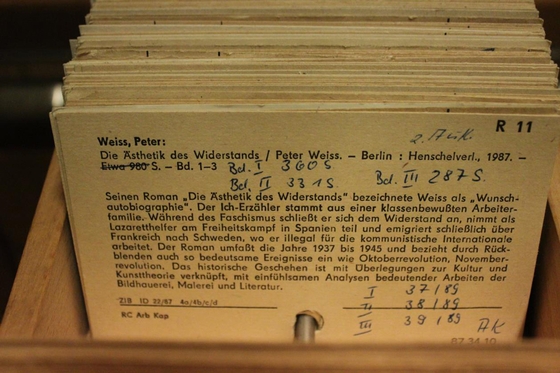 R 11
2. Aufl.
Weiss, Peter:
Die Ästhetik des Widerstands / Peter Weiss. – Berlin : Henschelverl., 1987. –
Etwa 980 S. – Bd. 1–3 Bd. I 360 S
Bd. II 331 S Bd. III 287 S.
Seinen Roman „Die Ästhetik des Widerstands“ bezeichnete Weiss als „Wunsch-
autobiographie“. Der Ich-Erzähler stammt aus einer klassenbewußten Arbeiter-
familie. Während des Faschismus schließt er sich dem Widerstand an, nimmt als
Lazaretthelfer am Freiheitskampf in Spanien teil und emigriert schließlich über
Frankreich nach Schweden, wo er illegal für die kommunistische Internationale
arbeitet. Der Roman umfaßt die Jahre 1937 bis 1945 und bezieht durch Rück-
blenden auch so bedeutsame Ereignisse ein wie Oktoberrevolution, November-
revolution. Das historische Geschehen ist mit Überlegungen zur Kultur und
Kunsttheorie verknüpft, mit einfühlsamen Analysen bedeutender Arbeiten der
Bildhauerei, Malerei und Literatur.
I 37/89
ZIB ID 22/87 4a/4b/c/d II 38/89
RC Arb Kap III 39/89 AK
87 34 10